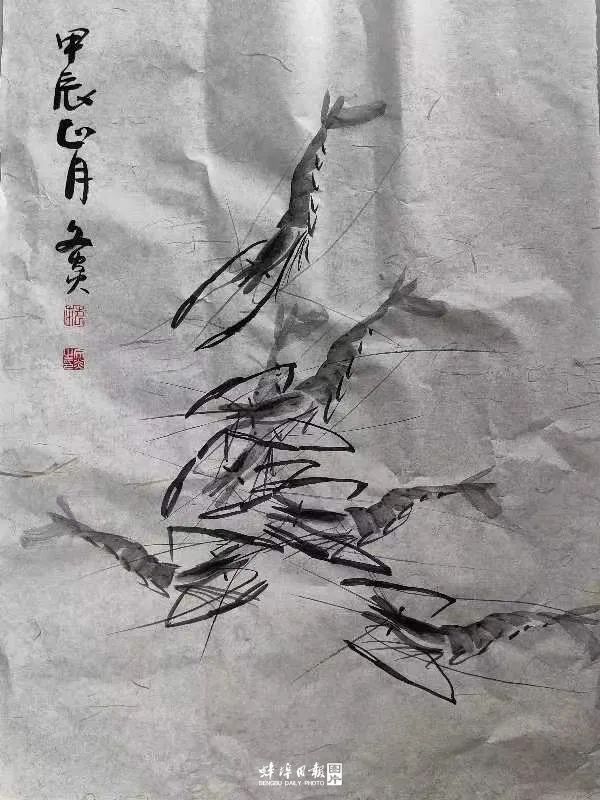 甲辰正月
文
蚌埠日报 图片
BENGBU DAILY PHOTO